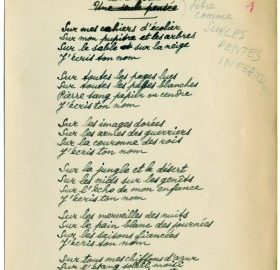 Une seule pensée
Sur mes cahiers d'écolier
Sur mon pupitre et les arbres
Sur le sable et sur la neige
J'écris ton nom
Sur toutes les pages lues
Sur toutes les pages blanches
Pierre sang papier ou cendre
J'écris ton nom
Sur les images dorées
Sur les armes des guerriers
Sur la couronne des rois
J'écris ton nom
Sur la jungle et le désert
Sur les nids sur les genêts
Sur l'écho de mon enfance
J'écris ton nom
Sur les merveilles des nuits
Sur le pain blanc des journées
Sur les saisons fiancées
J'écris ton nom
Sur tous mes chiffons d'azur
Sur l'étang soleil moisi
comme
SUR LES
1